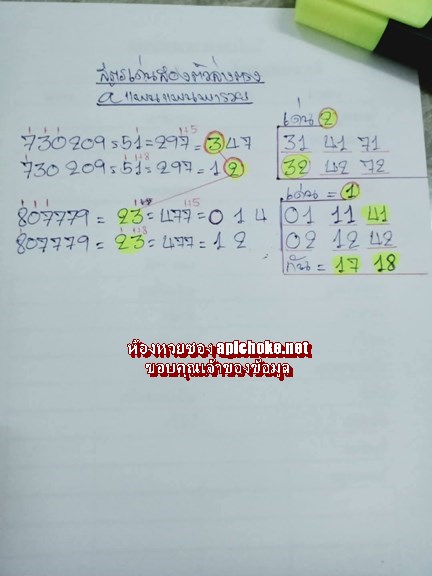 สูตรเด่นสองตัวล่างตรง
a แพนแพนพารวย
730209=51=297=347
730209=51=297=12
807779=23=477=014
807779=23=477=12
เด่น 2
31 41 71
32 42 72
เด่น = 1
01 11 41
02 12 42
กัน = 17 18
ห้องหวยซอง apichoke.net
ขอบคุณเจ้าของข้อมูล